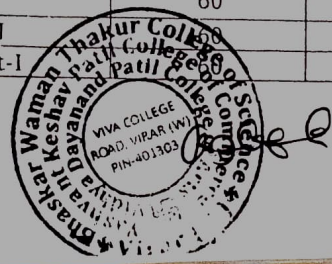 60
I 60
t-I 60
Bhaskar Waman Thakur College of Science
Yashvant Keshav Patil College of Commerce
Vidhya Dayanand Patil College of Arts
VIVA COLLEGE
ROAD, VIRAR (W)
PIN-401303